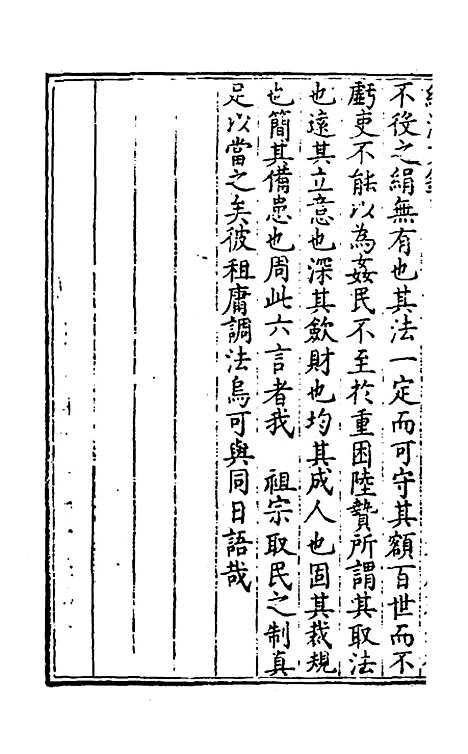 不役之絹無有也其法一定而可守其額百世而不
虧吏不能以為姦民不至於重困陸贄所謂其取法
也遠其立意也深其歛財也均其成人也固其裁規
也簡其備患也周此六言者我　祖宗取民之制真
足以當之矣彼租庸調法烏可與同日語哉